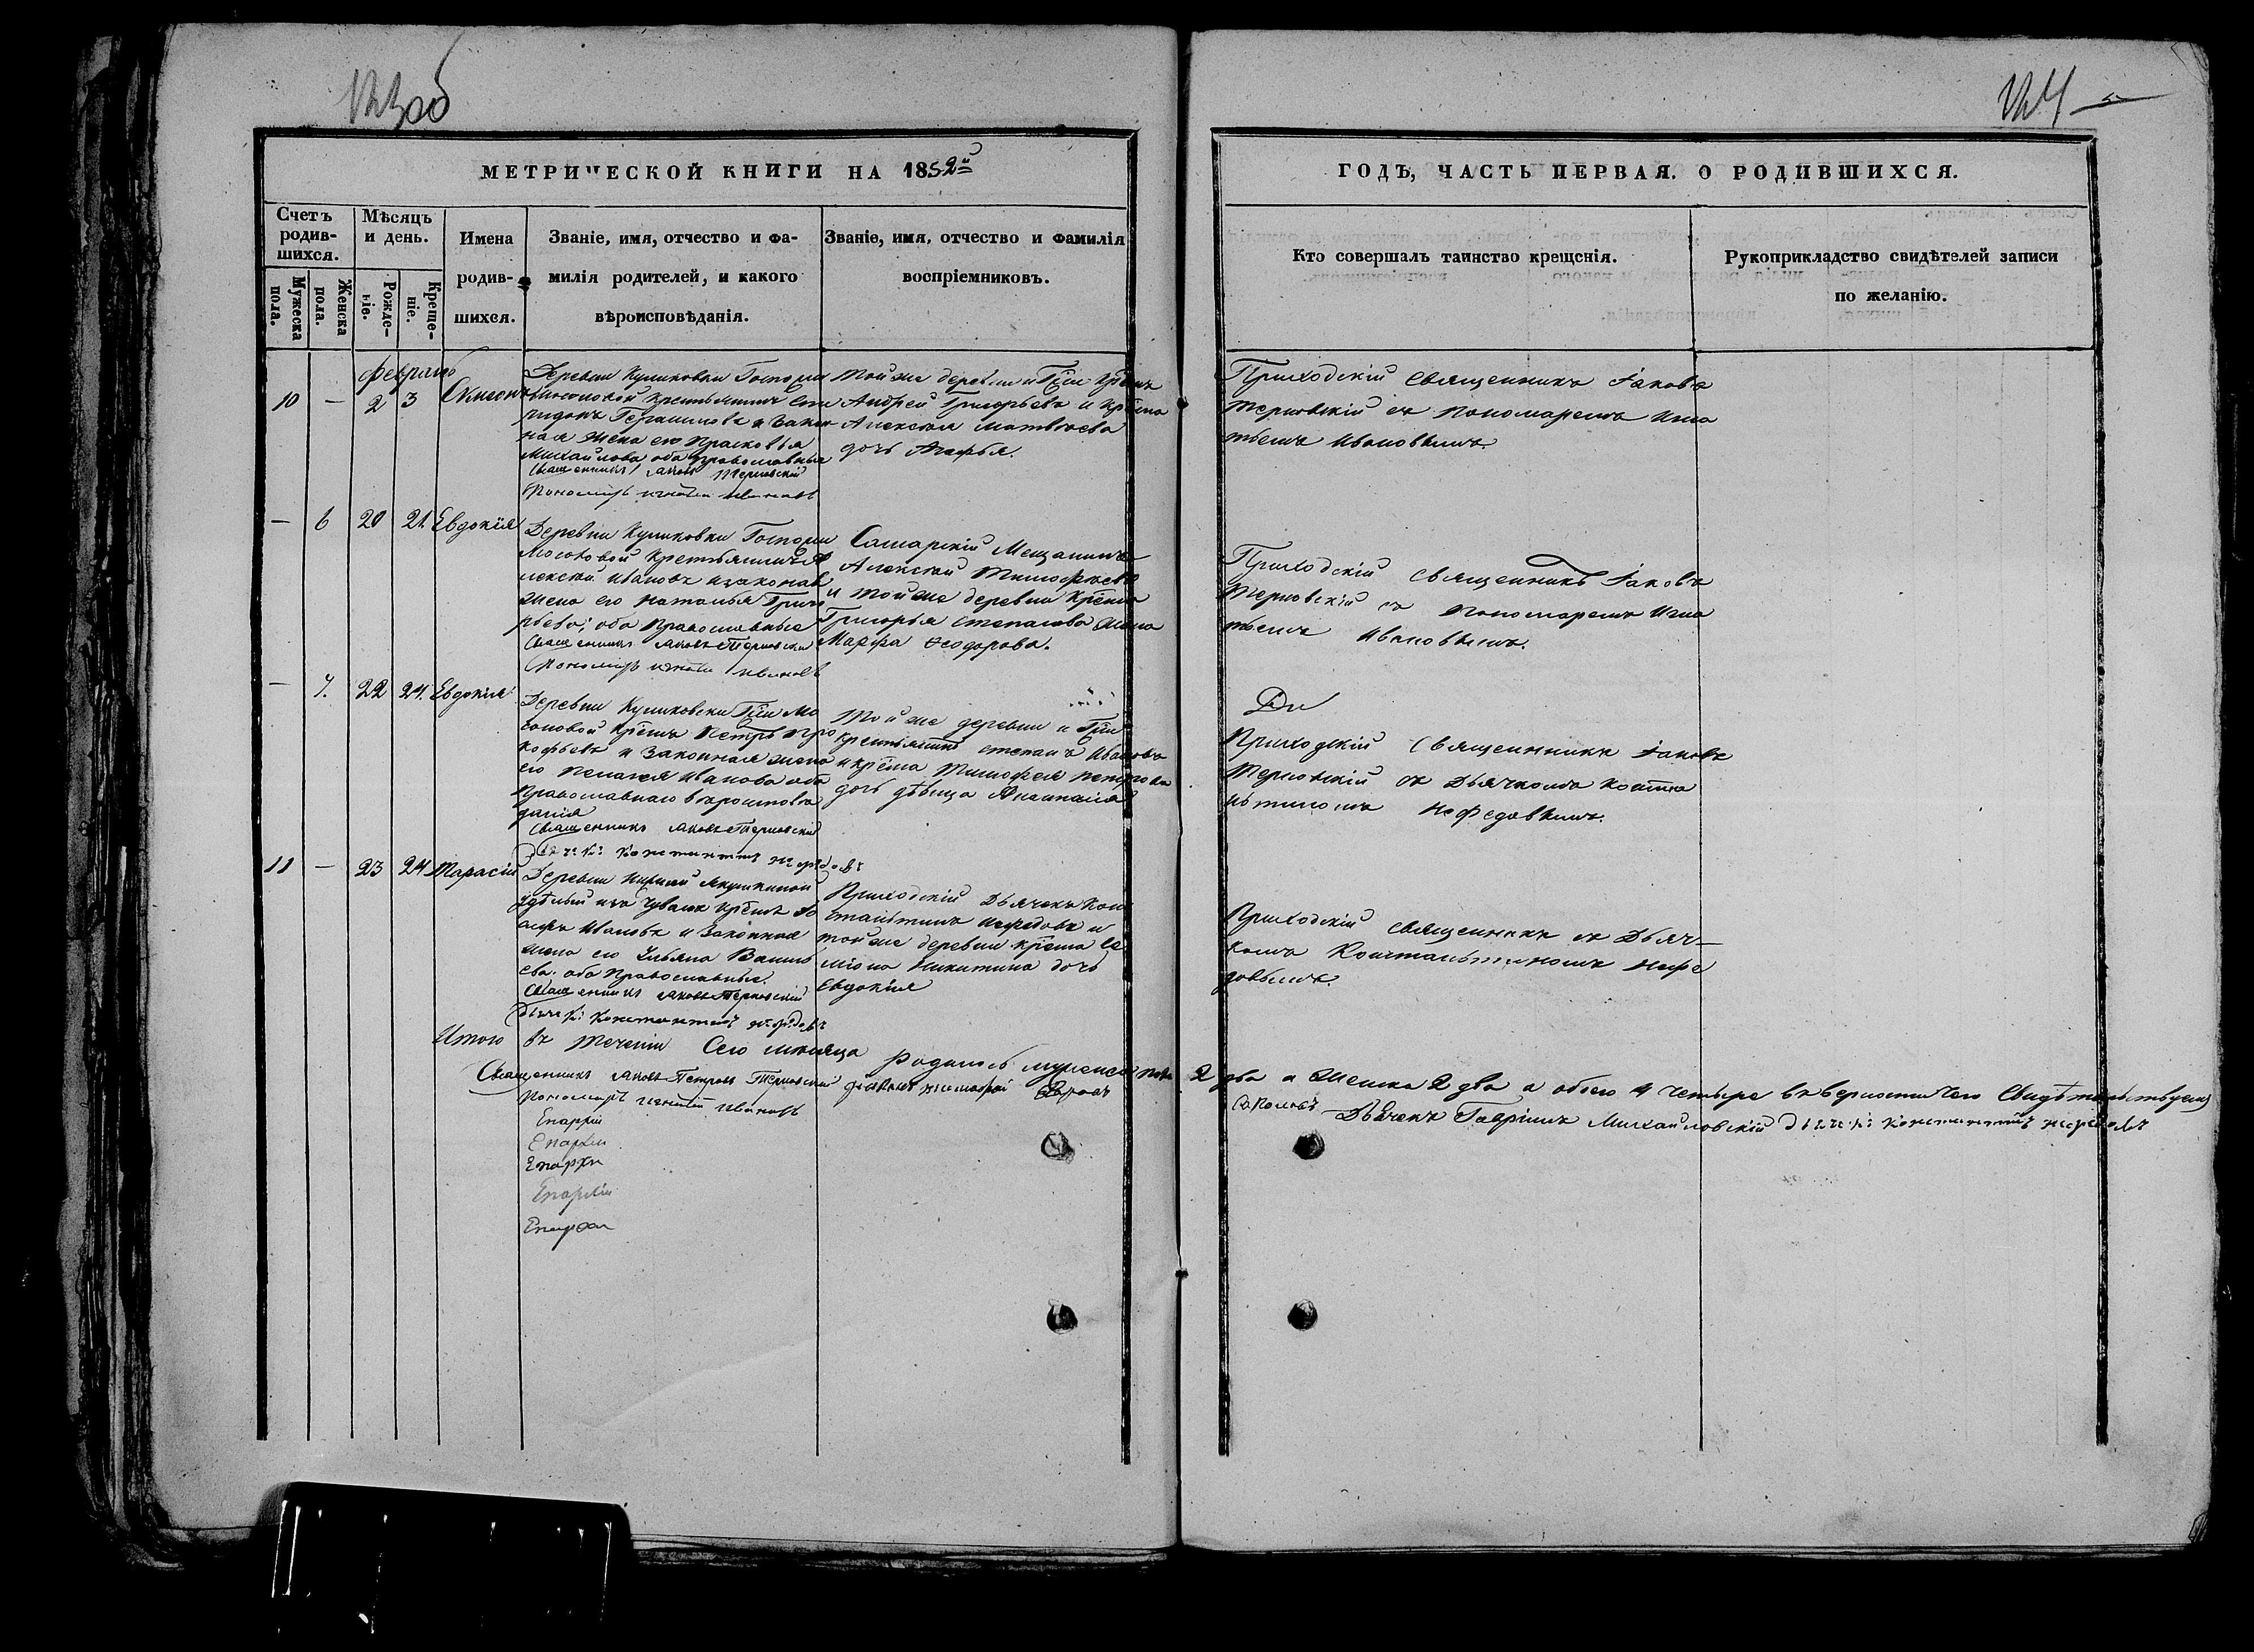 123об
124
МЕТРИЧЕСКОЙ КНИГИ НА 1852й
ГОДЪ, ЧАСТЬ ПЕРВАЯ. О РОДИВШИХСЯ.
Счетъ родившихся.
Мужеска пола.
Женска пола.
Мѣсяцъ и день.
Рожденіе.
Крещеніе.
Имена
родив-
шихся.
Званіе, имя, отчество и фа-
милія родителей, и какого
вѣроисповѣданія.
Званіе, имя, отчество и фамилія
воспріемниковъ.
Кто совершалъ таинство крещенія.
Рукоприкладство свидѣтелей записи
по желанію.
февраль
10 — 2 3 Симеонъ
Деревни Куликовки Госпожи
крестьянинъ
Герасимовъ и закон
ная жена его Прасковья
Михайлова оба православные
Священникъ Іаковъ Терновскій
Пономарь Игнатій Ивановъ
Той же деревни и Гжи крѣнъ
Андрей Григорьевъ и крѣна
Алексѣя Матвѣева
дочь Агафья.
Приходскій священникъ Іаковъ
Терновскій съ пономаремъ Игна
тьемъ Ивановымъ.
— 6 20 21. Евдокія
Деревни Куликовки Госпожи
Мосоловой крестьянинъ А
лексѣй Ивановъ и законная
жена его Наталья Григо
рьева; оба Православные
Священникъ Іаковъ Терновскій
Пономарь Игнатій Ивановъ
Самарскій Мещанинъ
Алексѣй Тимофѣевъ
и той же деревни крѣнина
Григорья Степанова жена
Марфа Ѳеодорова.
Приходскій священникъ Іаковъ
Терновскій съ пономаремъ Игна
тьемъ Ивановымъ.
— 7. 22 24. Евдокія
Деревни Куликовки Гжи Мо
соловой крѣнъ Петръ Про
кофьевъ и законная жена
его Пелагея Иванова оба
Православнаго вѣроисповѣ
данія
Священникъ Іаковъ Терновскій
Дьячекъ Константинъ Нефедовъ
Той же деревни и Гжи
крестьянинъ Степанъ Ивановъ
и крѣна Тимофея Петрова
дочь дѣвица Анастасія
Приходскій Священникъ Іаковъ
Терновскій съ Дьячкомъ Конста
нтиномъ Нефедовымъ.
11 — 23 24 Тарасій
Деревни Якушкиной
Удѣльный изъ Чувашъ крѣнъ
Ивановъ и Законная
жена его Ульяна Василь
ева. оба Православные.
Священникъ Іаковъ Терновскій
Дьячекъ Константинъ Нефедовъ
Приходскій Дьячекъ Кон
стантинъ Нефедовъ и
той же деревни крѣна Се
міона Никитина дочь
Евдокія
Приходскій священникъ съ Дьяч-
комъ Константиномъ Нефе
довымъ.
Итого въ теченіи Сего мѣсяца родилось мужеска пола 2 два а Женска 2 два а обоего 4 четыре въ верности чего Свидѣтельствуемъ
Священникъ Іаковъ Петровъ Терновскій
Дьячекъ Гавріилъ Михайловскій Дьячекъ Константинъ Нефедовъ
Пономарь Игнатій Ивановъ
Епархіи
Епархіи
Епархіи
Епархіи
Епархіи